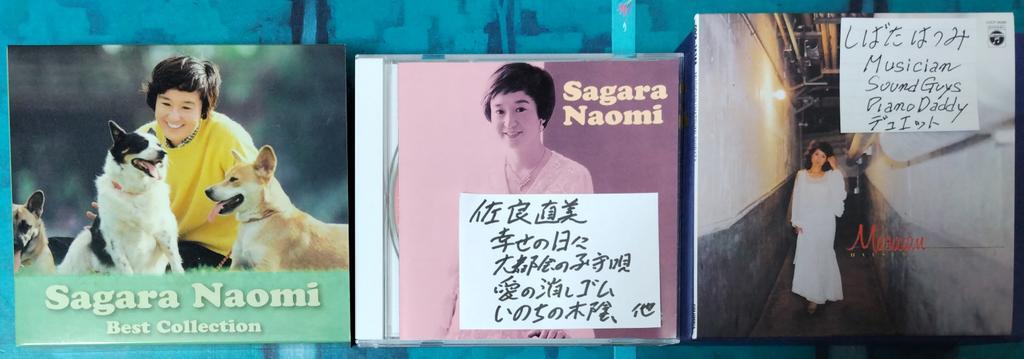 Sagara Naomi
Best Collection
Sagara
Naomi
佐良直美
幸せの日々
大都会の子守唄
愛の消しゴム
いのちの木陰、他
しばたはつみ
Musician
SoundGuys
PianoDaddy
デュエット